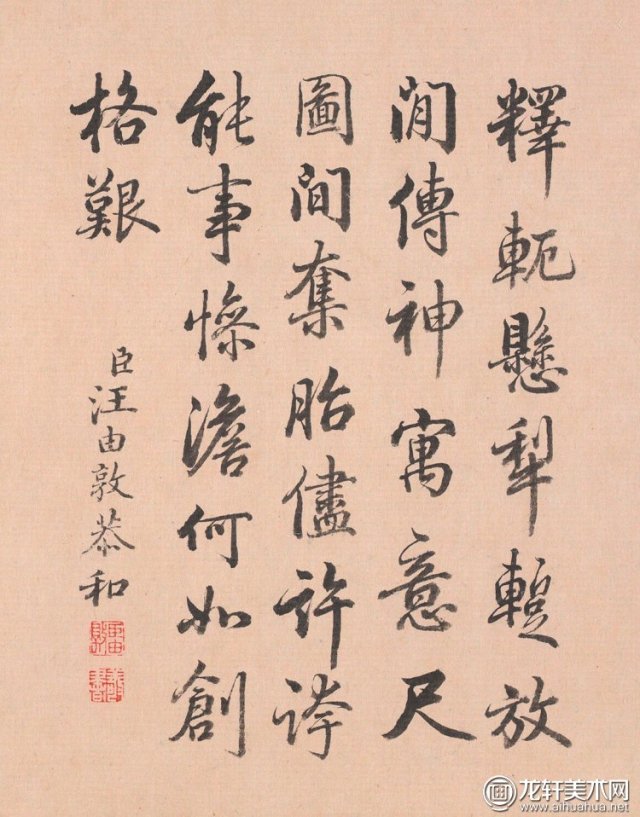 釋軛懸犁蹔放
閒傳神寓意尺
圖間奪胎儘許誇
能事慘澹何如創
格艱
臣汪由敦恭和
龙轩美术网
www.aihuahua.net